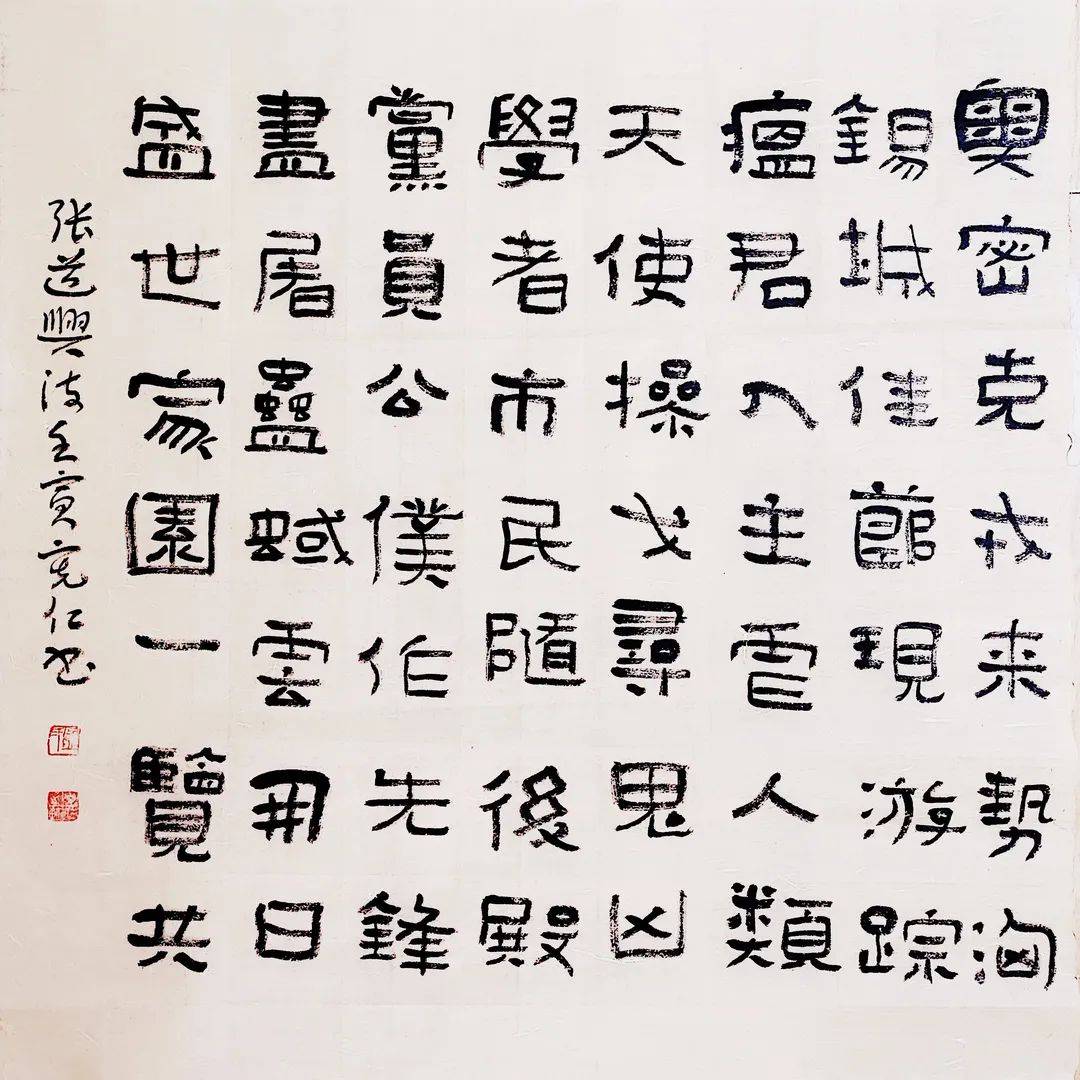 奧密克戎来勢洶
錫城佳節現游踪
瘟君入主虐人類
天使操戈尋鬼凶
學者市民隨後殿
黨員公僕作先鋒
盡屠蠱蜮雲開日
盛世家園一覽共
张道興诗壬寅仁书